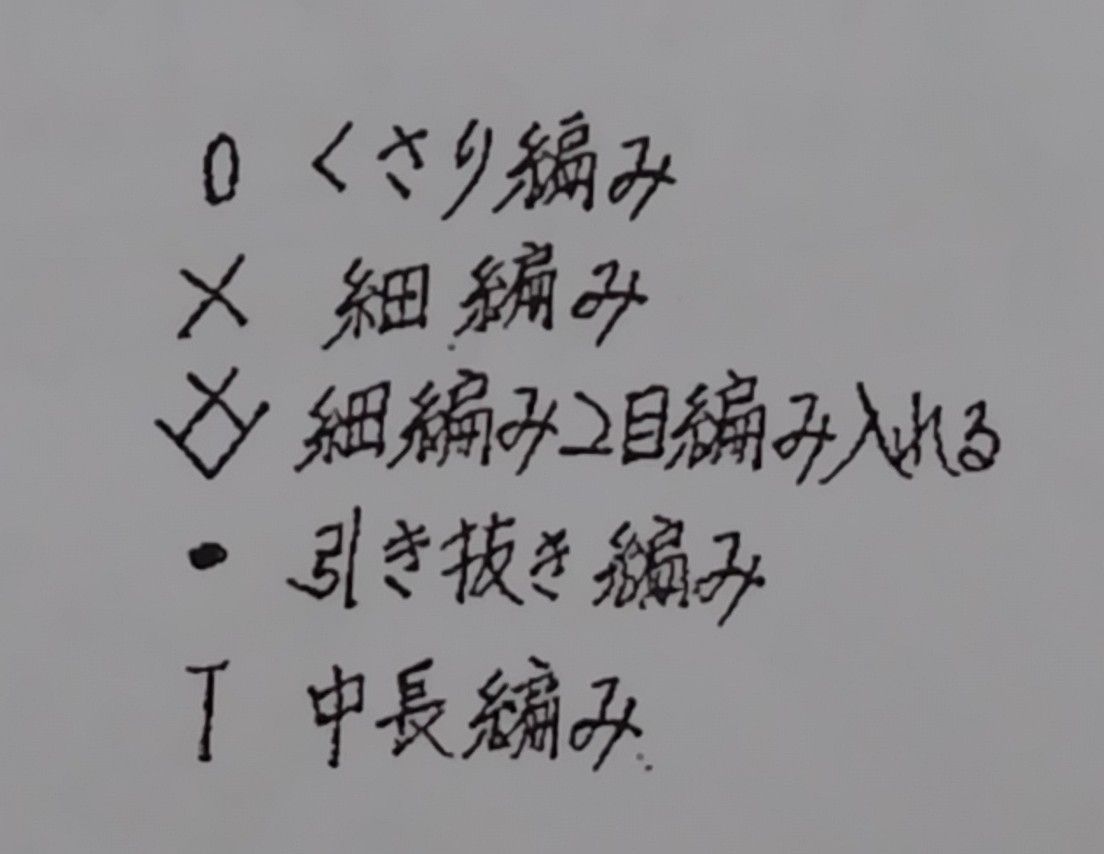 0 くさり編み
× 細編み
細編み2目編み入れる
• 引き抜き編み
T 中長編み